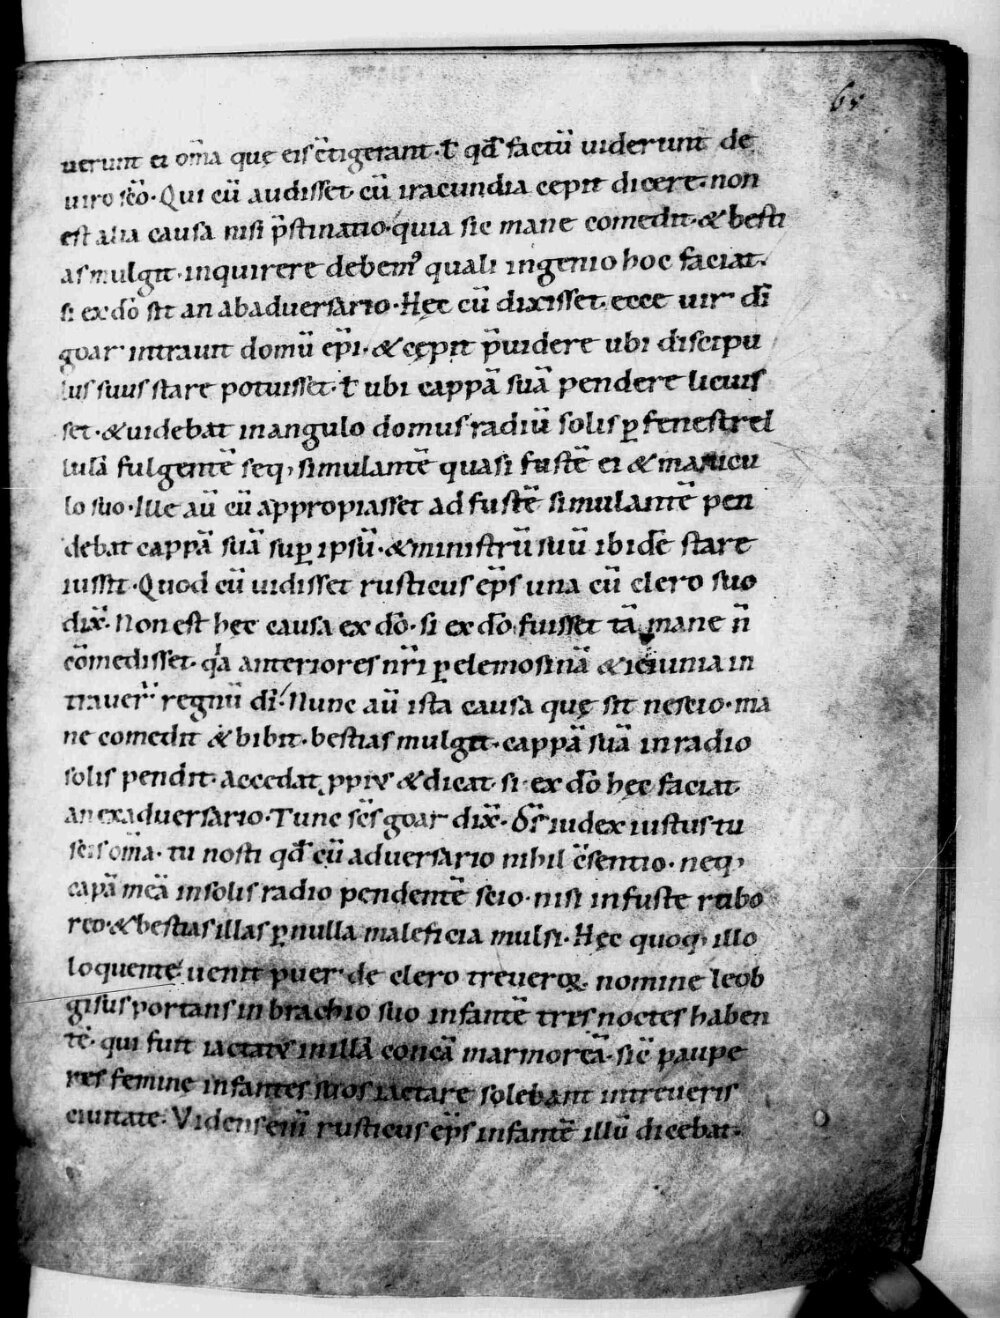 65
uerunt ei om̅a que̜ eis c̅tigerant· ł qd̅ factu̅ uiderunt de
uiro sc̅o· Qui cu̅ audisset cu̅ iracundia cepit dicere· non
est alia causa nisi p̅stinatio· quia sic mane comedit· & besti
as mulgit· inquirere debem᷒ quali ingenio hoc faciat·
si ex do̅ sit an abaduersario· He̜c cu̅ dixisset ecce uir di̅
goar intrauit domu̅ ep̅i· & ce̜pit p̅uidere ubi discipu
lus suus stare potuisset· ł ubi cappa̅ sua̅ pendere licuis
set· & uidebat in angulo domus radiu̅ solis ꝑ fenestrel
lula̅ fulgente̅ seq; simulante̅ quasi fuste̅ ei & manicu
lo suo· Ille au̅ cu̅ appropiasset ad fuste̅ simulante̅ pen
debat cappa̅ sua̅ suꝑ ipsu̅· & ministru̅ suu̅ ibide̅ stare
iussit· Quod cu̅ uidisset rusticus ep̅s una cu̅ clero suo
dix̅· Non est he̜c causa ex do̅· si ex do̅ fuisset ta̅ mane n̅
co̅medisset· qa anteriores nr̅i ꝑ elemosina̅ & ieiunia in
trauer̅ regnu̅ di̅· Nunc au̅ ista causa que̜ sit nescio· ma
ne comedit & bibit· bestias mulgit· cappa̅ sua̅ in radio
solis pendit· accedat ꝓpiꝰ & dicat· si ex do̅ he̜c faciat
an exaduersario· Tunc sc̅s goar dix̅· Ds̅ iudex iustus tu
scis om̅a· tu nosti qd̅ cu̅ aduersario nihil c̅sentio· neq;
capa̅ mea̅ in solis radio pendente̅ scio· nisi in fuste rubo
reo· & bestias illas ꝑ nulla maleficia mulsi· He̜c quoq; illo
loquente· uenit puer de clero treueroꝝ· nomine leob
gisus portans in brachio suo infante̅ tres noctes haben
te̅· qui fuit iactatꝰ in illa̅ conca̅ marmorea̅· sic̅ paupe
res femine̜ infantes suos iactare solebant in treueris
ciuitate· Videns eni̅ rusticus ep̅s infante̅ illu̅ dicebat·